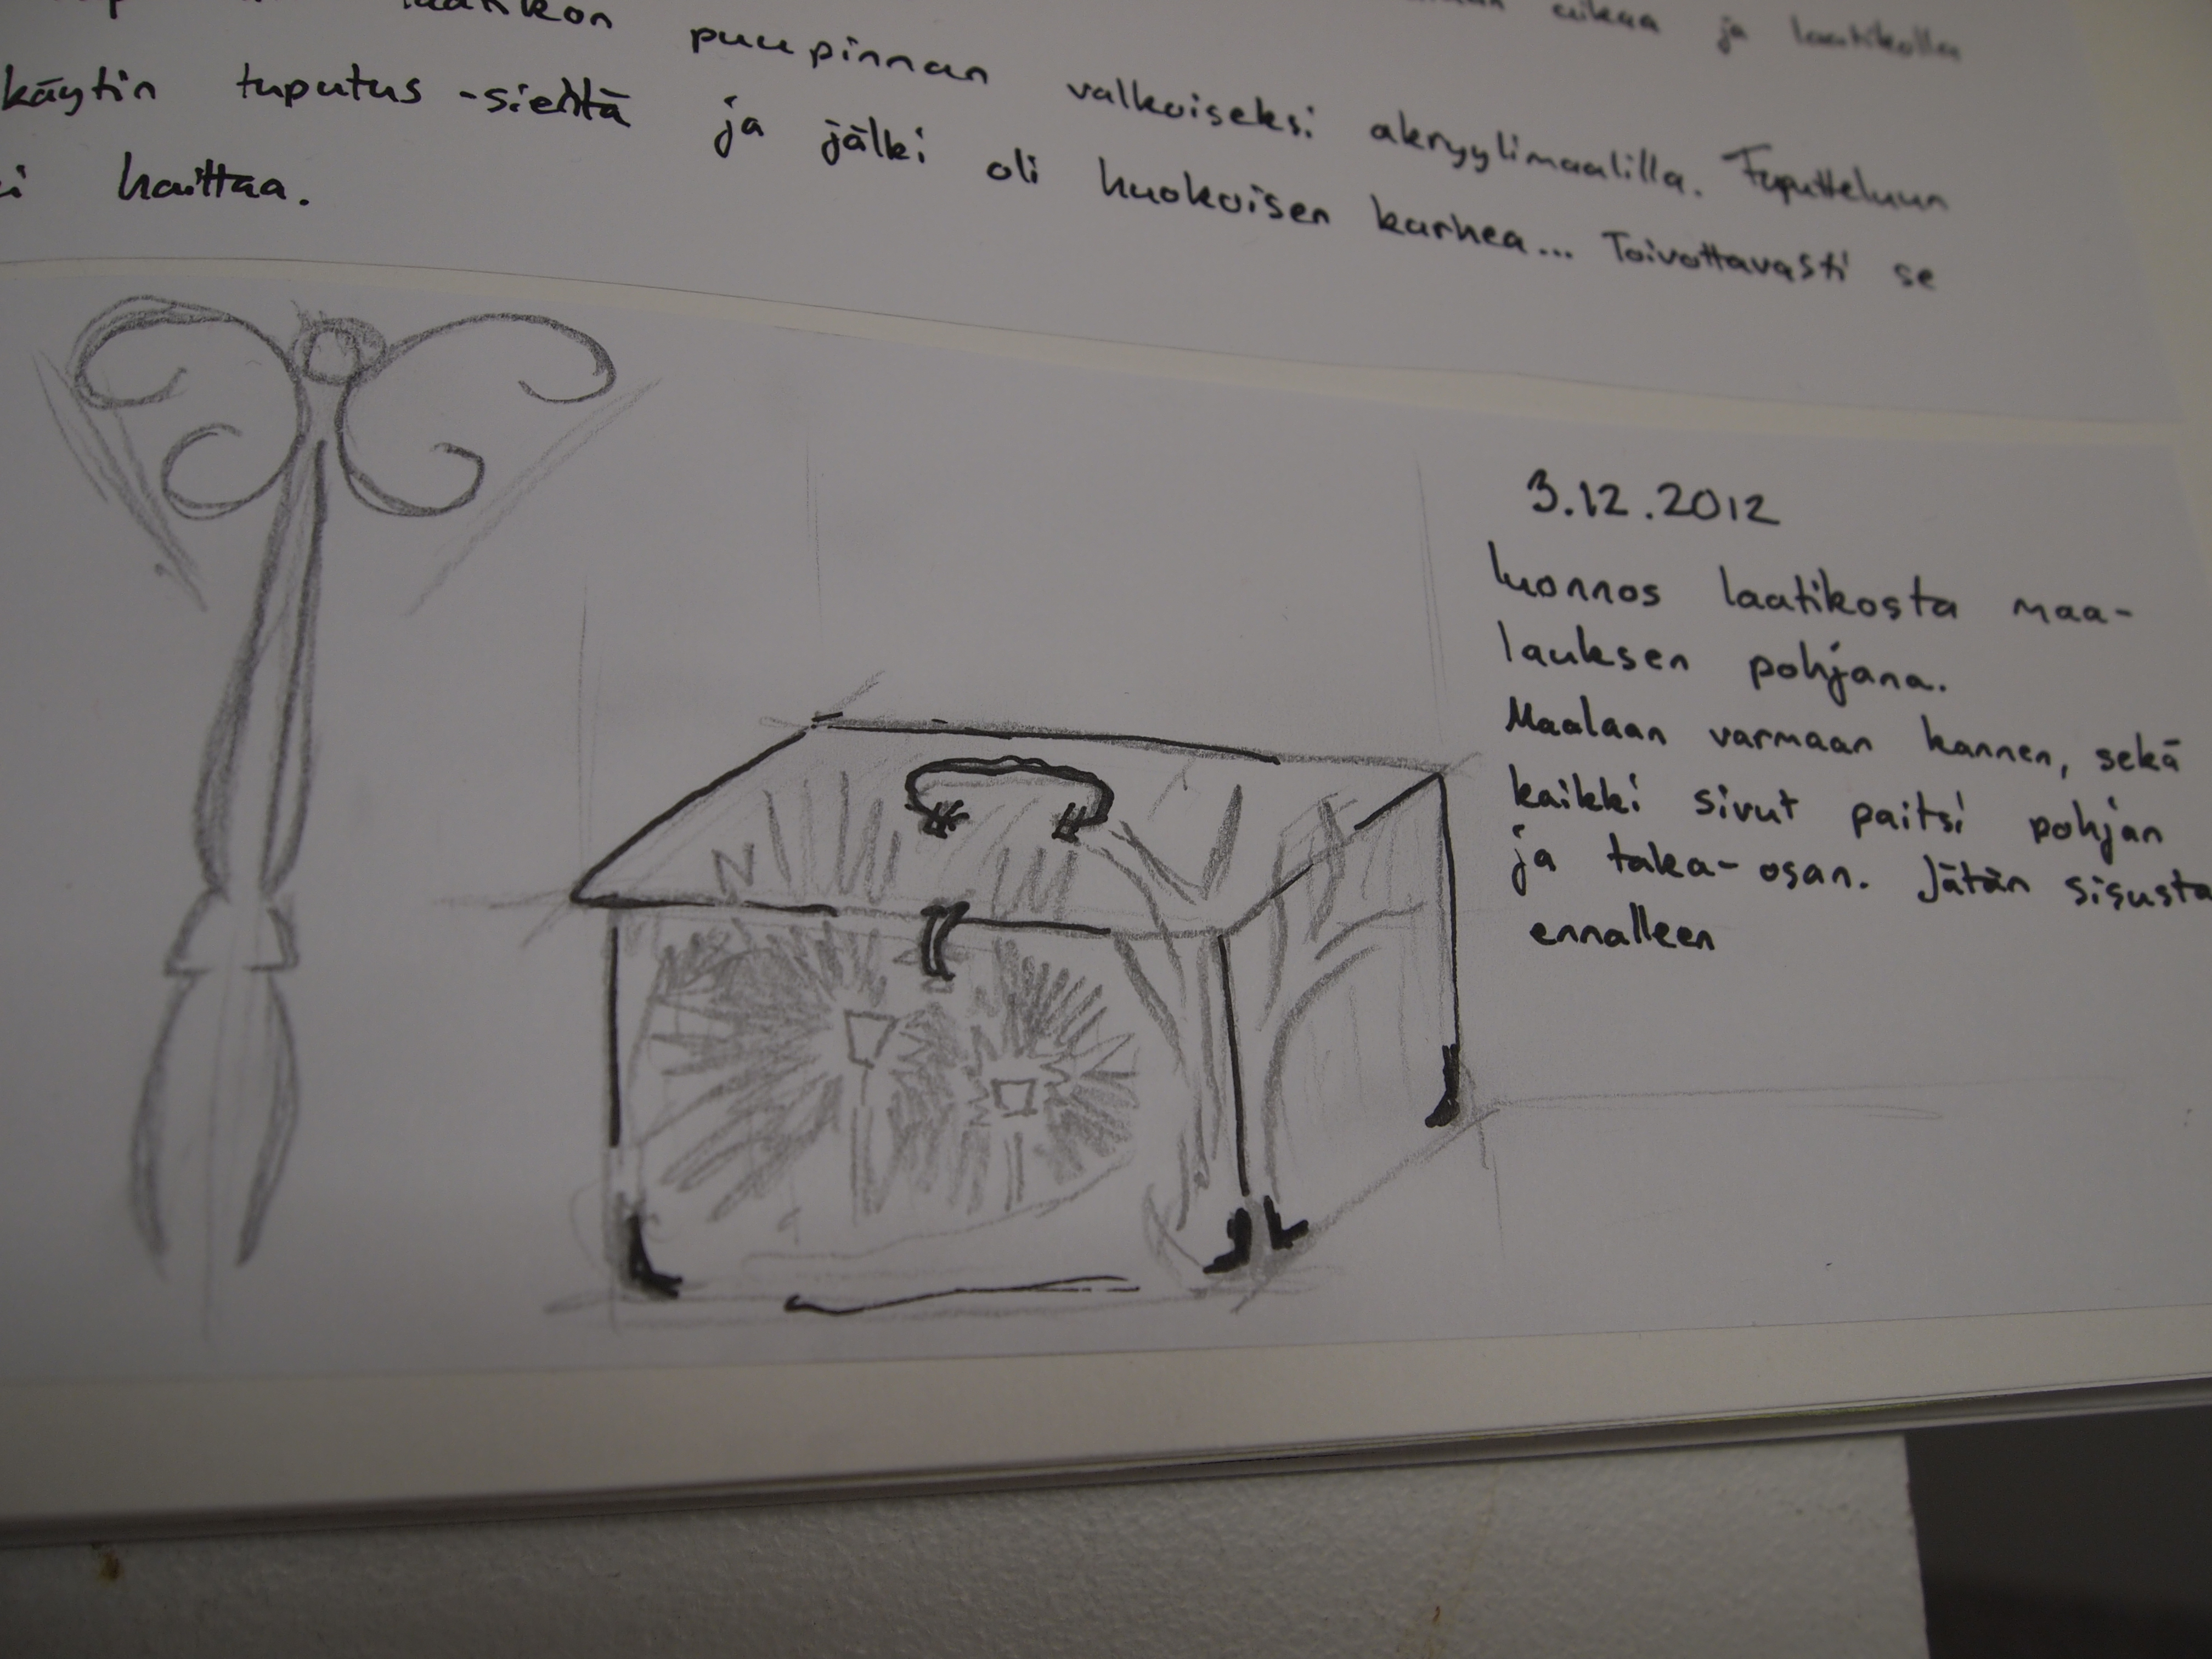 aikaa ja laatikolla
laatikon puupinnan valkoiseksi akryylimaalilla. Tuputteluun
käytin tuputus -sientä ja jälki oli huokoisen karhea... Toivottavasti se
haittaa.
3.12.2012
Luonnos laatikosta maa-
lauksen pohjana.
Maalaan varmaan kannen, sekä
kaikki sivut paitsi pohjan
ja taka-osan. Jätän sisusta
ennalleen